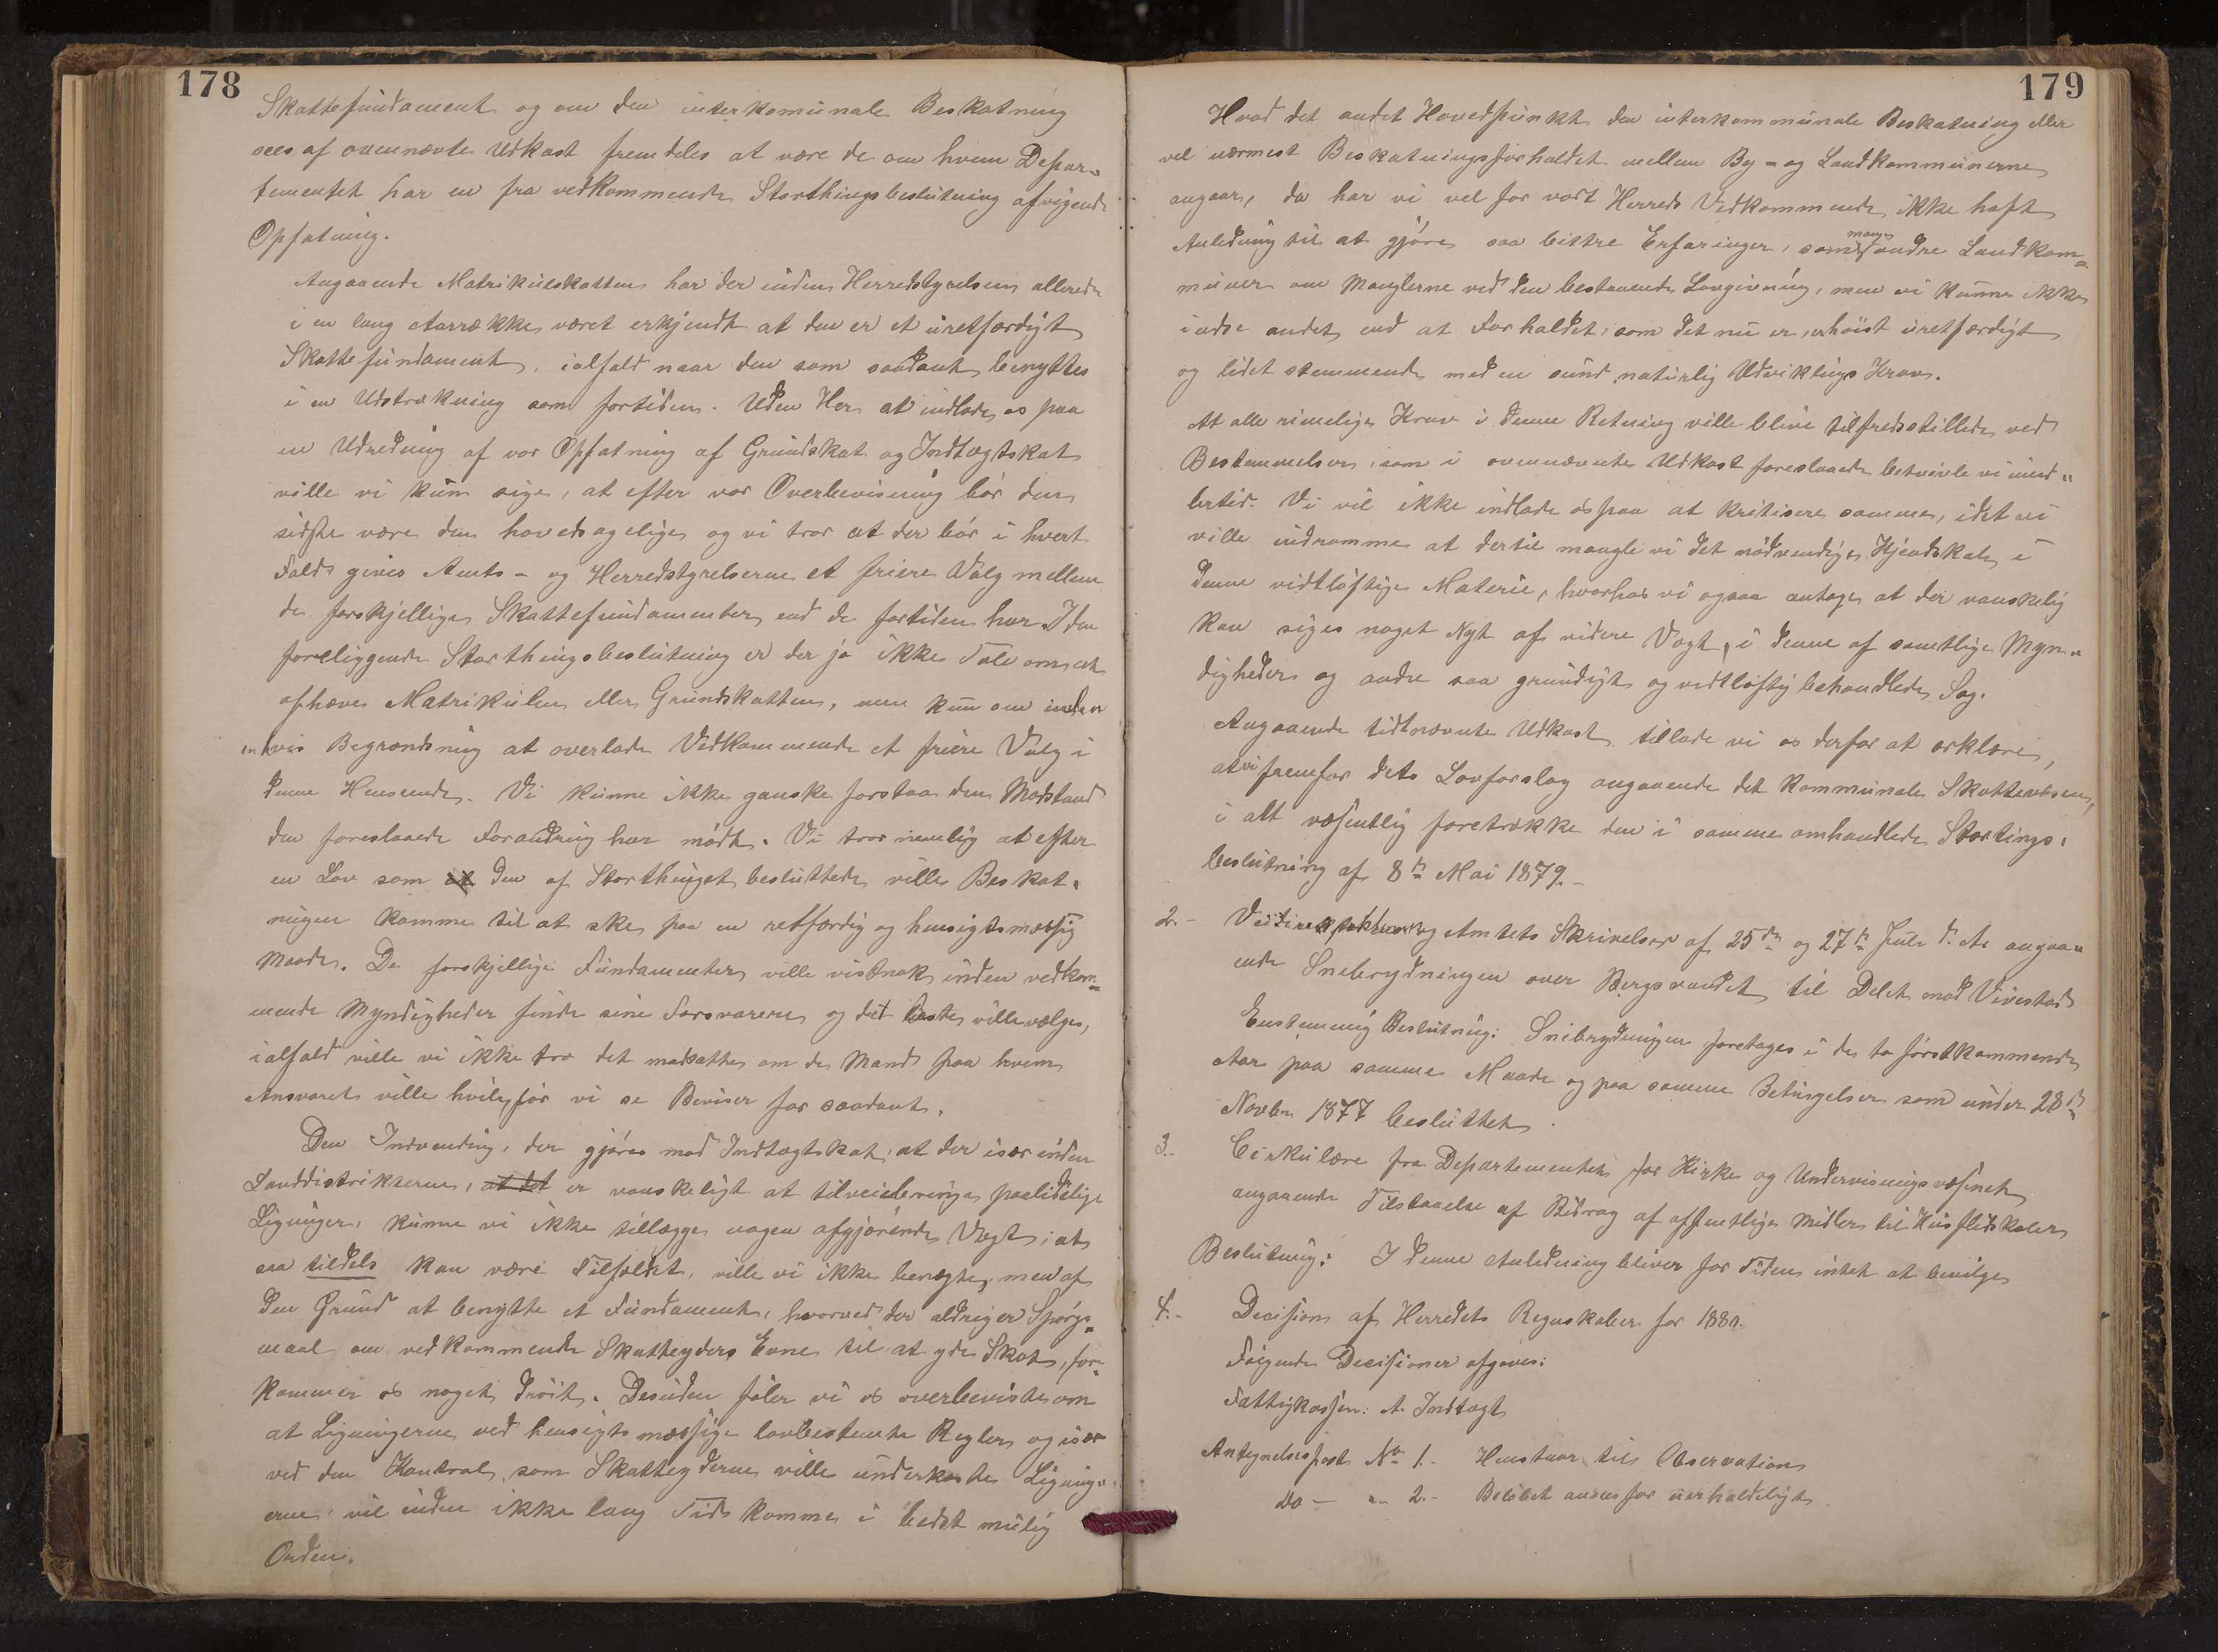 178
Skattefundament og om den interkomunale Beskatning
sees af ovennævnte Udkast fremdeles at være de om hvem Depar-
tementet har en fra vedkommende Storthingsbeslutning afvigende
Opfatning.
Angaaende Matrikulskatten har der inden Herredstyrelsen allerede
i en lang Aarrække været erkjendt at den er et uretfærdigt
Skattefundament, ialfald naar den som saadant benyttes
i en Udstrækning som fortiden. Uden Her at indlade os paa
en Udredning af vor Opfatning af Grundskat og Indtægtskat
ville vi kun sige, at efter vor Overbevisning bör den
sidste være den hovedsagelige og vi tror at der bör i hvert
Fald gives Amts- og Herredstyrelserne et friere Valg mellem
de forskjellige Skattefundamenter end de fortiden har. I den
foreliggende Storthingsbeslutning er der jo ikke Tale om at
ophæve Matrikulen eller Grundskatten, men kun om inden
en hvis Begrændsning at overlade Vedkommende et friere Valg i
denne Henseende. Vi kunne ikke ganske forstaa den Modstand
den foreslaaede Forandring har mödt. Vi tror nemlig at efter
en Lov som at den af Storthinget besluttede ville Beskat-
ningen komme til at ske paa en retfærdig og hensigtsmæssig
Maade. De forskjellige Fundamenter ville vistnok inden vedkom-
mende Myndigheder finde sine Forsvarere og det beste ville vælges,
ialfald ville vi ikke tro det modsatte om de Mænd paa hvem
Ansvaret ville hvile för vi se Beviser for saadant.
Den Indvending, der gjöres mod Indtægtskat, at der især inden
Landdistrikterne, at det er vanskeligt at tilveiebringe paalidelige
Ligninger, kunne vi ikke tillægge nogen afgjörende Vægt; at
saa tildels kan være Tilfældet, ville vi ikke benægte, men af
den Grund at benytte et Fundament, hvorved der aldrig er Spörgs-
maal om vedkommende Skatteyders Evne til at yde Skat, fore-
kommer os noget dröit. Desuden föler vi os overbeviste om
at Ligningerne ved hensigtsmæssige lovbestemte Regler og især
ved den Kontrol, som Skatteyderne ville underkaste Ligning-
erne, vil inden ikke lang Tid komme i bedst mulig
Orden.
179
Hvad det andet Hovedpunkt den interkommunale Beskatning eller
vel nærmest Beskatningsforholdet mellem By- og Landkommunerne
angaar, da har vi vel for vort Herreds Vedkommende ikke haft
Anledning til at gjöre saa bittre Erfaringer, som mange andre Landkom-
muner om Manglerne ved den bestaaende Lovgivning, men vi kunne ikke
indse andet end at Forholdet, som det nu er, er höist uretfærdigt
og lidet stemmende med en sund naturlig Udviklings Krav.
At alle rimelige Krav i denne Retning ville blive tilfredsstillede ved
Bestemmelsen, som i ovennævnte Udkast foreslaaede betvivle vi imid-
lertid. Vi vil ikke indlade os paa at kritisere samme, idet vi
ville indrømme at dertil mangle vi det nödvendige Kjendskab i
denne vidtlöftige Materie, hvorhos vi ogsaa antage at der vanskelig
kan siges noget Nyt af videre Vægt, i denne af samtlige Myn-
digheder og andre saa grundigt og vidtlöftig behandlede Sag.
Angaaende tidtnævnte Udkast tillade vi os derfor at erklære,
at vi fremfor dets Lovforslag angaaende det kommunale Skattevæsen,
i alt væsentlig foretrække den i samme omhandlede Stortings-
beslutning af 8de Mai 1879.-
2.- og Amtets Skrivelser af 25de og 27de Juli d. A. angaa-
ende Snebrydningen over Bergsvandet til Delet mod Vivestad
Enstemmig Beslutning: Snebrydningen foretages i de to förstkommende
Aar paa samme Maade og paa samme Betingelser som under 28de
Novbr 1877 besluttet.
3.- Cirkulære fra Departementet for Kirke og Undervisningsvæsenet
angaaende Tilstaaelse af Bidrag af offentlige Midler til Husflidskoler
Beslutning: I denne Anledning bliver for Tiden intet at bevilge
4.- Decision af Herredets Regnskaber for 1880.
Fölgende Decisioner afgaves:
Fattigkassen: A. Indtægt
Antegnelsespost No 1.- Henstaar til Observation
do - " 2.- Belöbet ansees for uerholdeligt